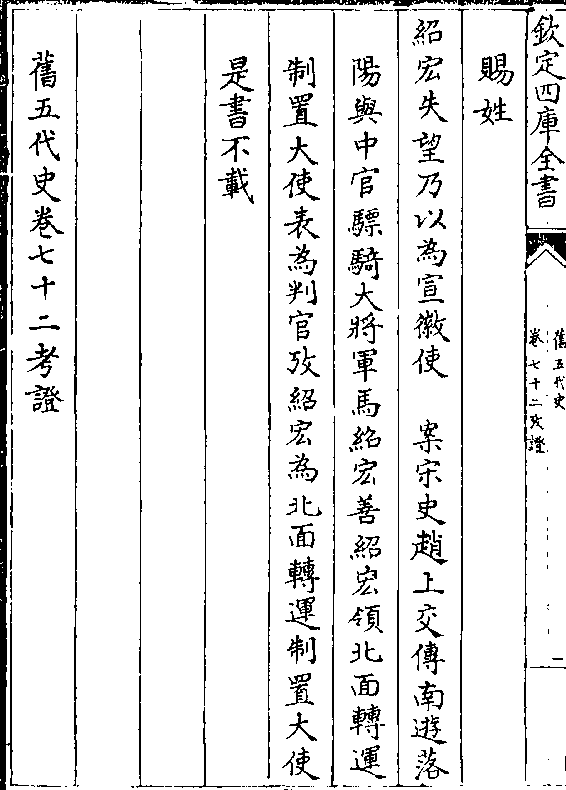 欽定四庫全書
舊五代史
卷七十二攷證
二
賜姓
紹宏失望乃以為宣徽使　案宋史趙上交傳南遊落
陽與中官驃騎大將軍馬紹宏善紹宏領北面轉運
制置大使表為判官攷紹宏為北面轉運制置大使
是書不載
舊五代史卷七十二考證